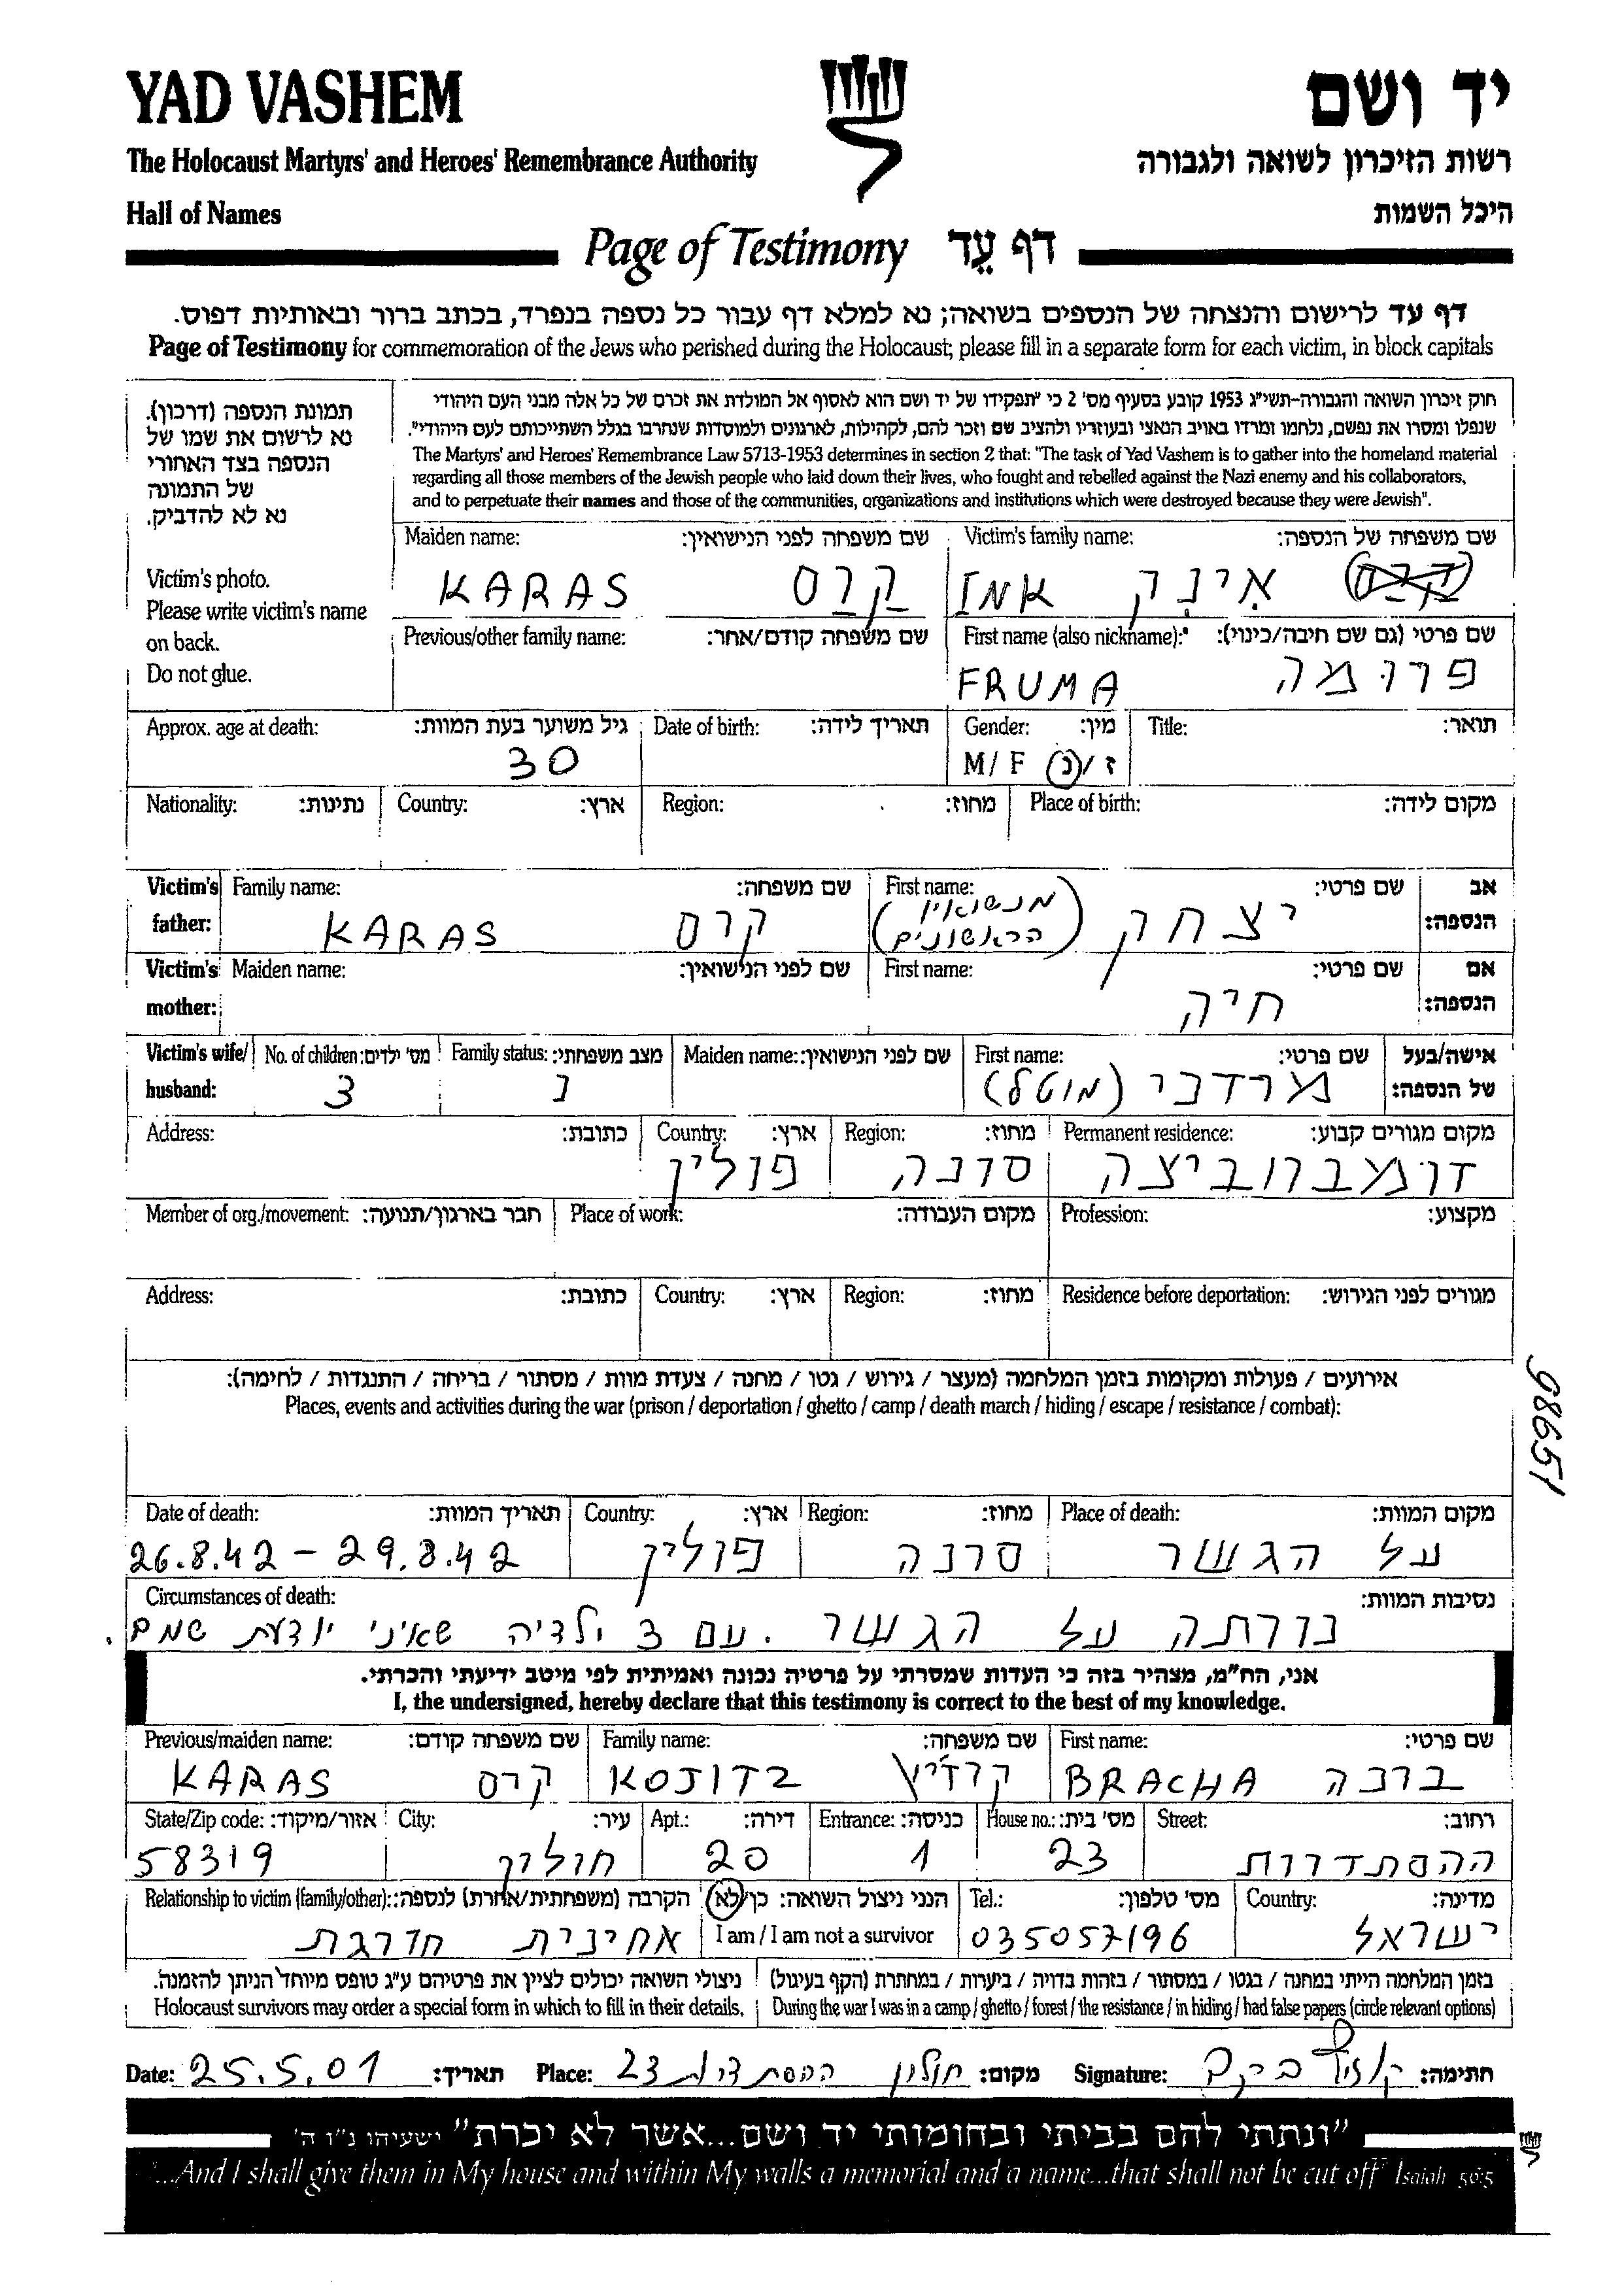 YAD VASHEM
יד ושם
The Holocaust Martyrs' and Heroes' Remembrance Authority
רשות הזיכרון לשואה ולגבורה
Hall of Names
היכל השמות
Page of Testimony דף עֵד
דף עד לרישום והנצחה של הנספים בשואה; נא למלא דף עבור כל נספה בנפרד, בכתב ברור ובאותיות דפוס.
Page of Testimony for commemoration of the Jews who perished during the Holocaust; please fill in a separate form for each victim, in block capitals
תמונת הנספה (דרכון).
נא לרשום את שמו של
הנספה בצד האחורי
של התמונה
נא לא להדביק.
Victim's photo.
Please write victim's name
on back.
Do not glue.
חוק זיכרון השואה והגבורה-תשי"ג 1953 קובע בסעיף מס' 2 כי "תפקידו של יד ושם הוא לאסוף אל המולדת את זכרם של כל אלה מבני העם היהודי
שנפלו ומסרו את נפשם, נלחמו ומרדו באויב הנאצי ובעוזריו ולהציב שם וזכר להם, לקהילות, לארגונים ולמוסדות שנחרבו בגלל השתייכותם לעם היהודי".
The Martyrs' and Heroes' Remembrance Law 5713-1953 determines in section 2 that: "The task of Yad Vashem is to gather into the homeland material
regarding all those members of the Jewish people who laid down their lives, who fought and rebelled against the Nazi enemy and his collaborators,
and to perpetuate their names and those of the communities, organizations and institutions which were destroyed because they were Jewish".
Victim's family name: שם משפחה של הנספה:
INK אינק
Maiden name: שם משפחה לפני הנישואין:
KARAS קרס
First name (also nickname): שם פרטי (גם שם חיבה/כינוי):
FRUMA פרומה
Previous/other family name: שם משפחה קודם/אחר:
Title: תואר:
Gender: מין:
M/ F ז/נ
Date of birth: תאריך לידה:
Approx. age at death: גיל משוער בעת המוות:
30
Place of birth: מקום לידה:
Region: מחוז:
Country: ארץ:
Nationality: נתינות:
Victim's father: אב הנספה:
First name: שם פרטי:
יצחק (מנשואיו הראשונים)
Family name: שם משפחה:
KARAS קרס
Victim's mother: אם הנספה:
First name: שם פרטי:
חיה
Maiden name: שם לפני הנישואין:
Victim's wife/ husband: אישה/בעל של הנספה:
First name: שם פרטי:
מרדכי (מוטל)
Maiden name: שם לפני הנישואין:
Family status: מצב משפחתי:
נ
No. of children: מס' ילדים:
3
Permanent residence: מקום מגורים קבוע:
דומברוביצה
Region: מחוז:
סרנה
Country: ארץ:
פולין
Address: כתובת:
Profession: מקצוע:
Place of work: מקום העבודה:
Member of org./movement: חבר בארגון/תנועה:
Residence before deportation: מגורים לפני הגירוש:
Region: מחוז:
Country: ארץ:
Address: כתובת:
אירועים / פעולות ומקומות בזמן המלחמה (מעצר / גירוש / גטו / מחנה / צעדת מוות / מסתור / בריחה / התנגדות / לחימה):
Places, events and activities during the war (prison / deportation / ghetto / camp / death march / hiding / escape / resistance / combat):
98651
Place of death: מקום המוות:
על הגשר
Region: מחוז:
סרנה
Country: ארץ:
פולין
Date of death: תאריך המוות:
26.8.42 – 29.8.42
Circumstances of death: נסיבות המוות:
נורתה על הגשר. עם 3 ילדיה שאיני יודעת שמם.
אני, הח"מ, מצהיר בזה כי העדות שמסרתי על פרטיה נכונה ואמיתית לפי מיטב ידיעתי והכרתי.
I, the undersigned, hereby declare that this testimony is correct to the best of my knowledge.
First name: שם פרטי:
BRACHA ברכה
Family name: שם משפחה:
Previous/maiden name: שם משפחה קודם:
KARAS קרס
Street: רחוב:
ההסתדרות
House no.: מס' בית:
23
Entrance: כניסה:
1
Apt.: דירה:
20
City: עיר:
חולון
State/Zip code: אזור/מיקוד:
58319
Country: מדינה:
ישראל
Tel.: מס' טלפון:
035057196
הנני ניצול השואה: כן/לא
I am / I am not a survivor
Relationship to victim (family/other): הקרבה (משפחתית/אחרת) לנספה:
אחינית חורגת
בזמן המלחמה הייתי במחנה / בגטו / במסתור / בזהות בדויה / ביערות / במחתרת (הקף בעיגול)
During the war I was in a camp / ghetto / forest / the resistance / in hiding / had false papers (circle relevant options)
ניצולי השואה יכולים לציין את פרטיהם ע"ג טופס מיוחד הניתן להזמנה.
Holocaust survivors may order a special form in which to fill in their details.
Date: 25.5.01 תאריך: Place: ההסתדרות 23 חולון מקום: Signature: חתימה:
"ונתתי להם בביתי ובחומותי יד ושם...אשר לא יכרת" ישעיהו נ"ו ה'
"...And I shall give them in My house and within My walls a memorial and a name...that shall not be cut off" Isaiah 56:5